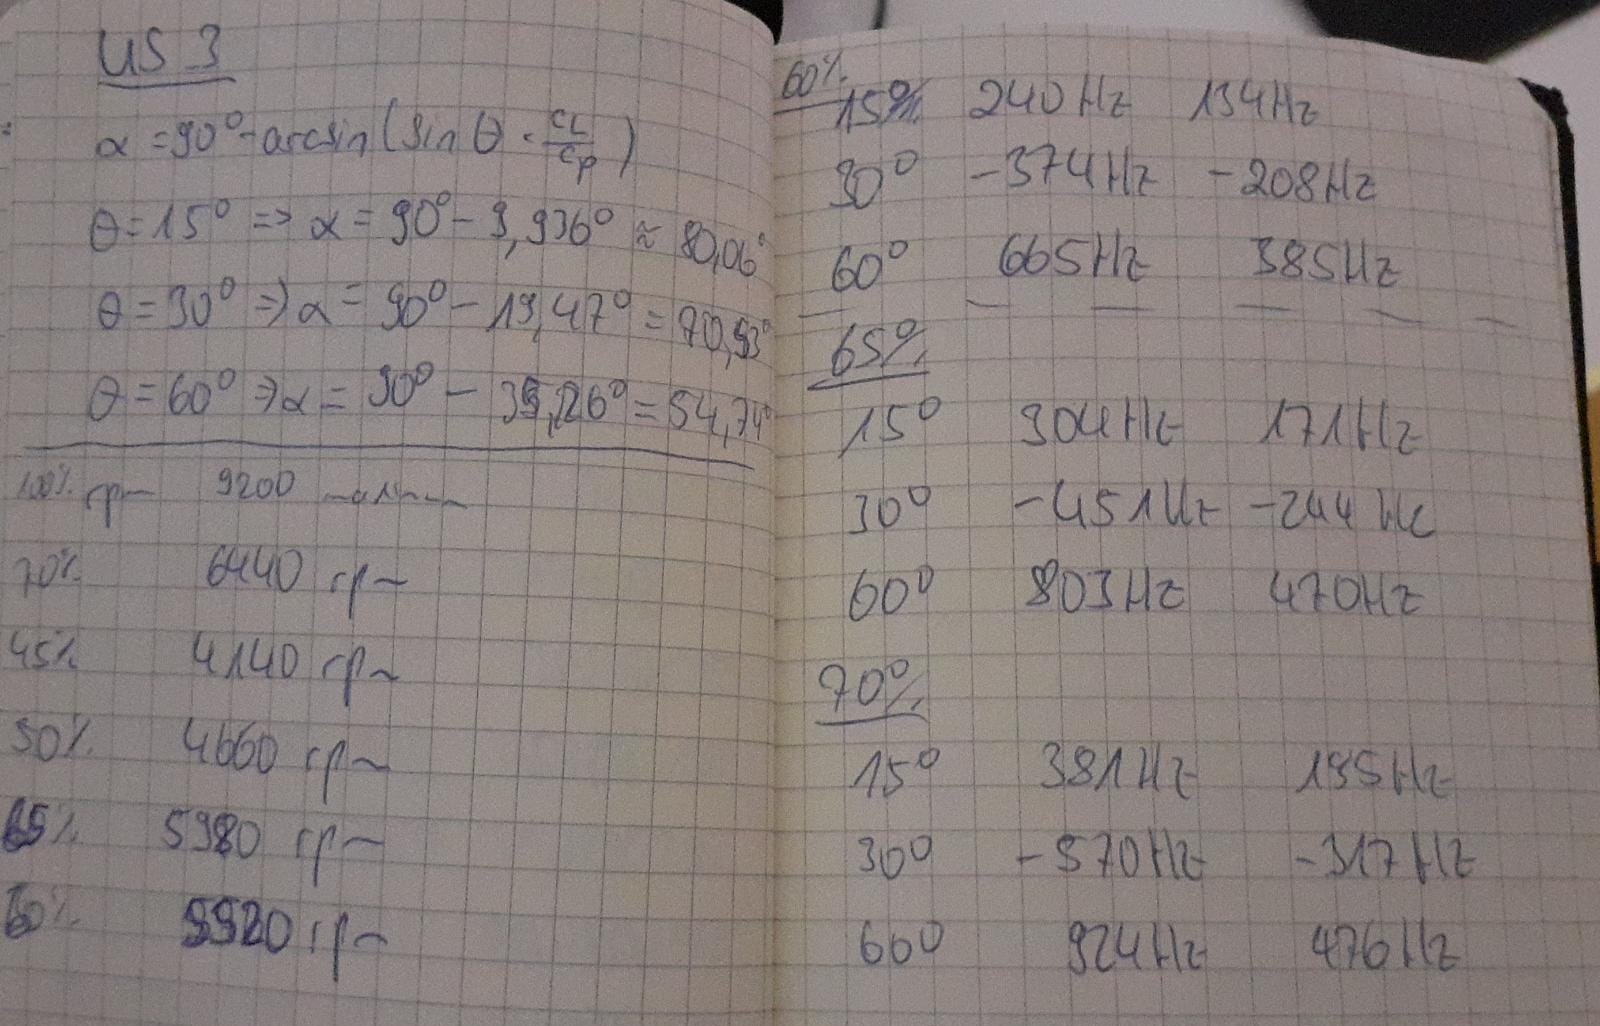 US 3
α = 90° - arcsin(sin θ · cL/cp)
θ = 15° => α = 90° - 9,936° ≈ 80,06°
θ = 30° => α = 90° - 19,47° = 70,53°
θ = 60° => α = 90° - 35,26° = 54,74°
100% rpm 9200
70% 6440 rpm
45% 4140 rpm
50% 4660 rpm
65% 5980 rpm
60% 5520 rpm
60%
15° 240 Hz 134 Hz
30° -374 Hz -208 Hz
60° 665 Hz 385 Hz
65%
15° 304 Hz 171 Hz
30° -451 Hz -244 Hz
60° 803 Hz 470 Hz
70%
15° 381 Hz 195 Hz
30° -570 Hz -317 Hz
60° 924 Hz 476 Hz